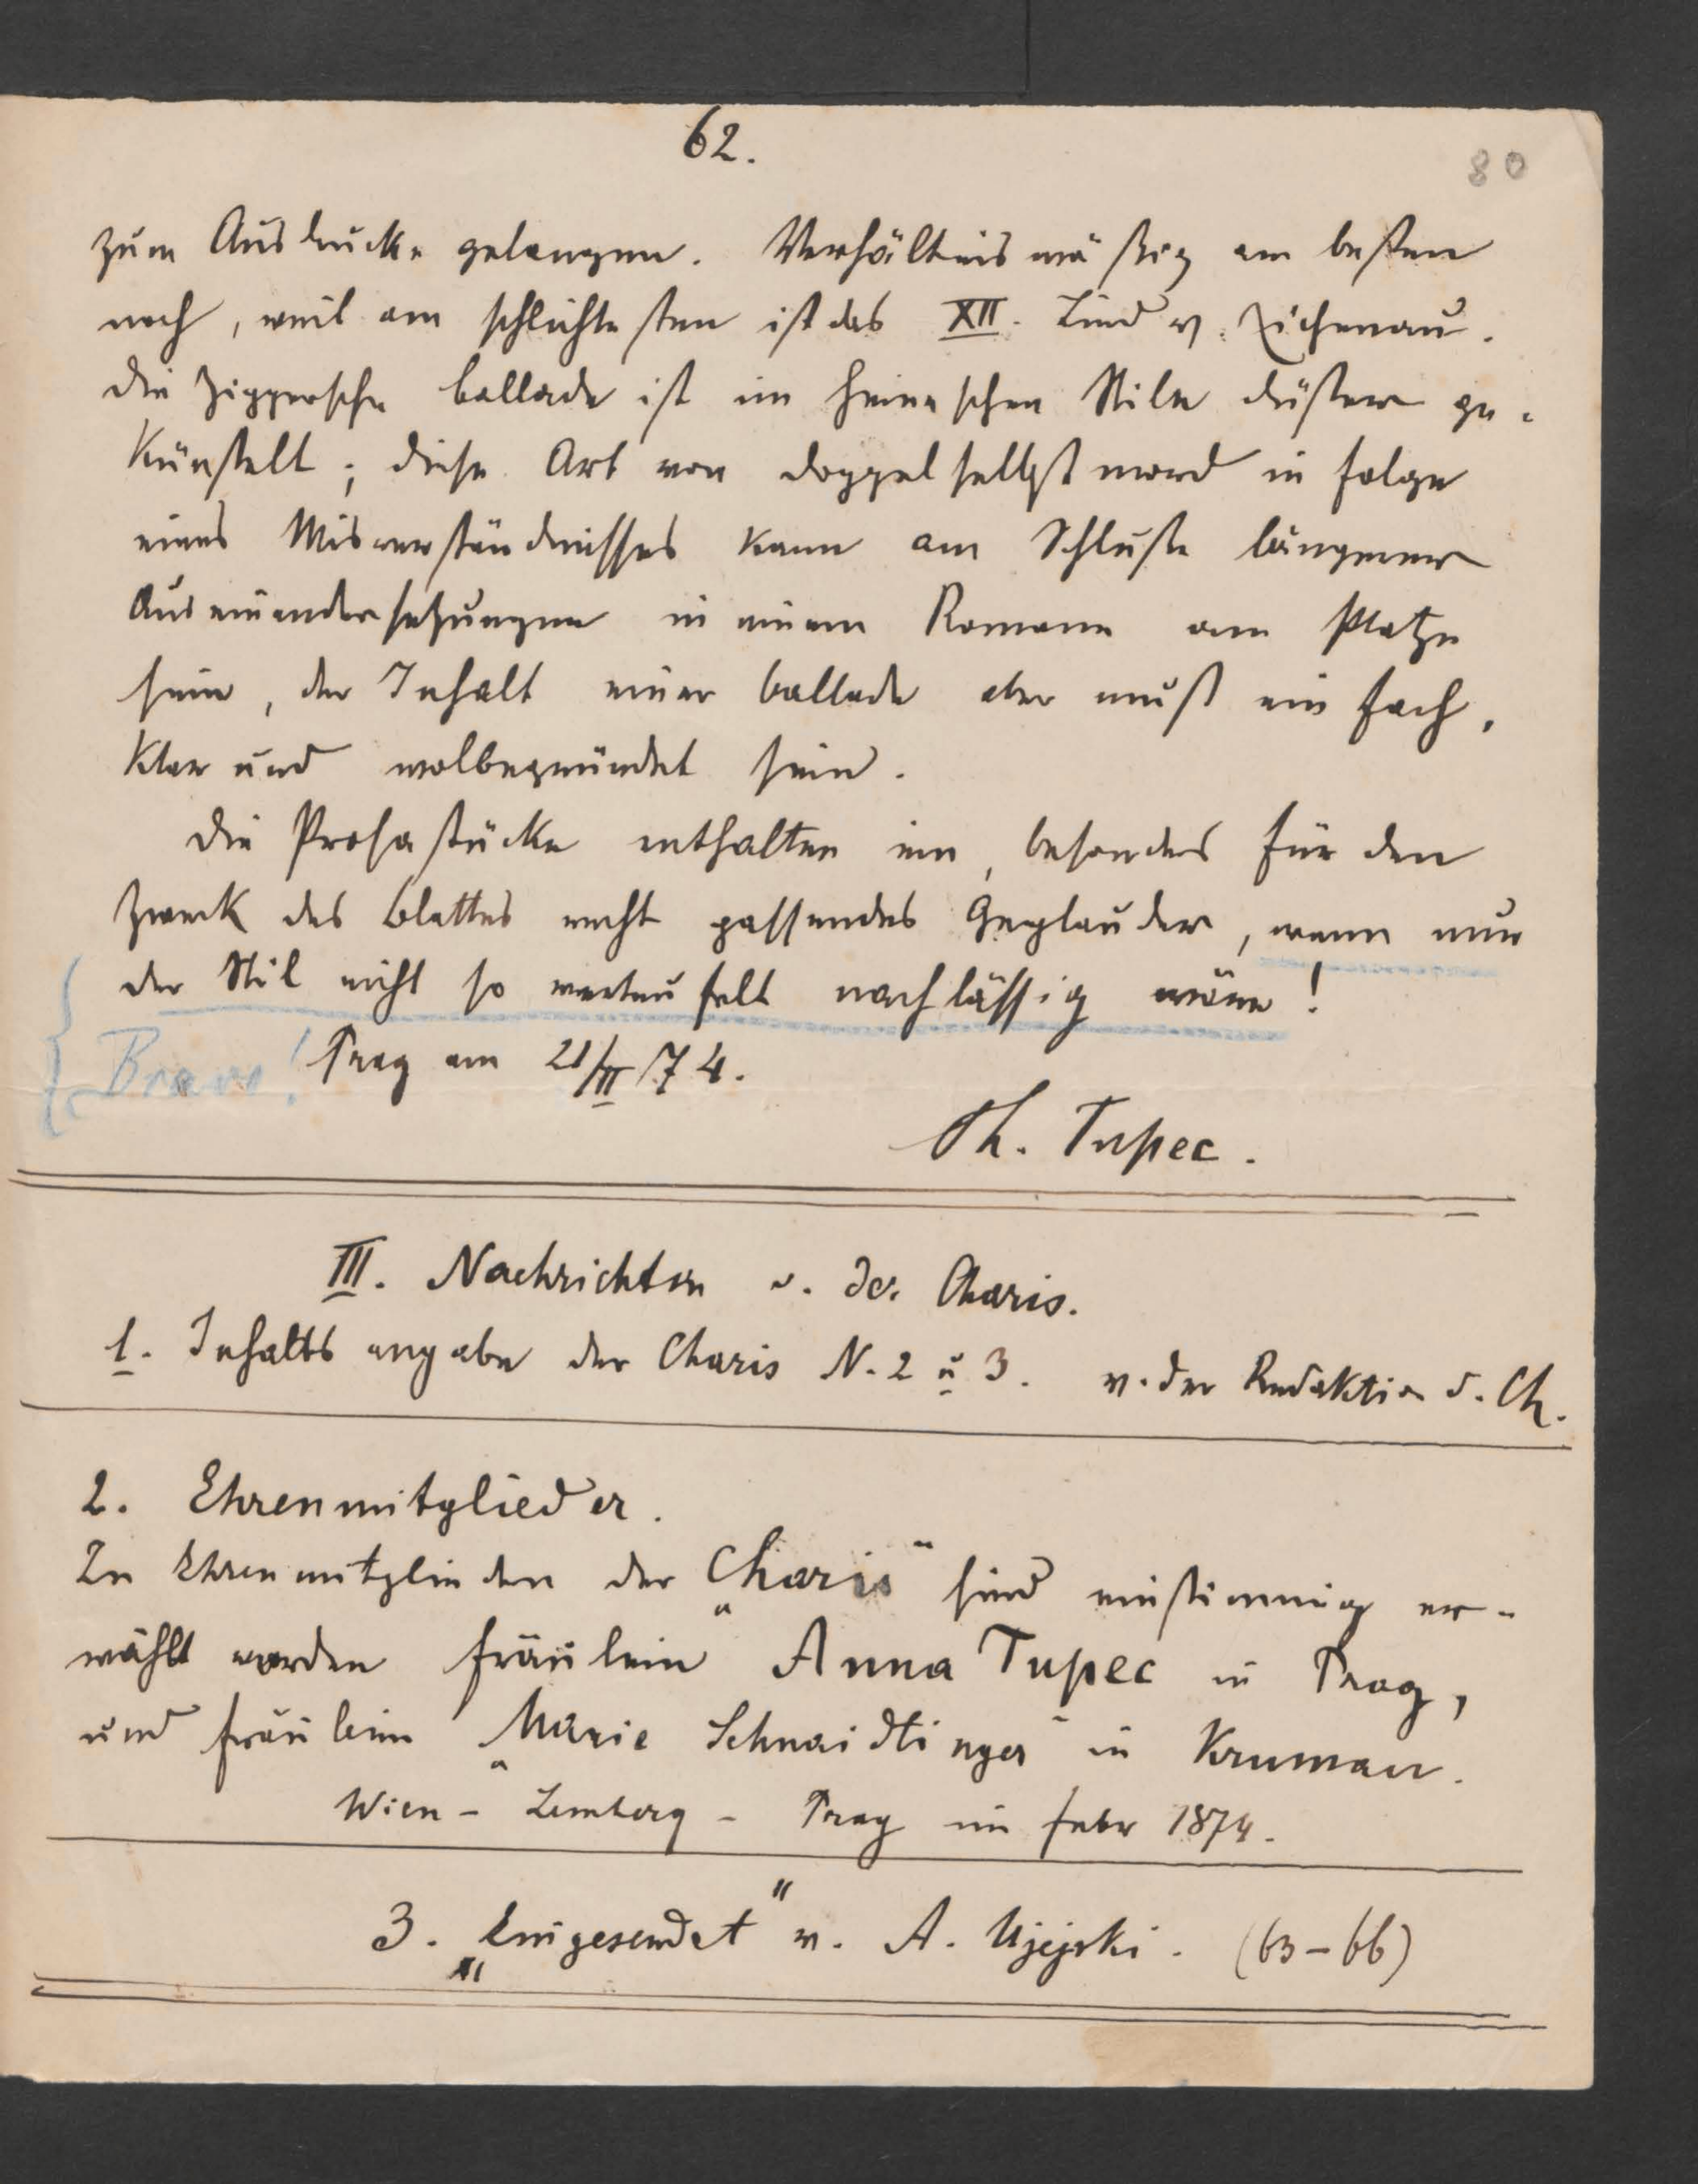 62.
80
zum Ausdrucke gelangen. Verhältnismäßig am besten
noch, weil am schlichtesten ist das XII. Lied v. Zichenau.
Die Zipper'sche Ballade ist im Heineschen Stile düster ge-
künstelt; diese Art von Doppelselbstmord in Folge
eines Misverständnisses kann am Schluße längerer
Auseinandersetzungen in einem Romane am Platze
sein, der Inhalt einer Ballade aber muß einfach,
klar und wolbegründet sein.
Die Prosastücke enthalten ein, besonders für den
Zweck des Blattes recht passendes Geplauder, wenn nur
der Stil nicht so verteufelt nachlässig wäre!
Bravo! Prag am 21/II/74.
Th. Tupec.
III. Nachrichten v. der Charis.
1. Inhaltsangabe der Charis N. 2 u 3. v. der Redaktion d. Ch.
2. Ehrenmitglieder.
Zu Ehrenmitgliedern der „Charis" sind einstimmig er-
wählt worden Fräulein Anna Tupec in Prag,
und Fräulein „Marie Schnaidtinger" in Krumau.
Wien - Lemberg - Prag im Febr 1874.
3. „Eingesendet" v. A. Ujejski. (63-66)